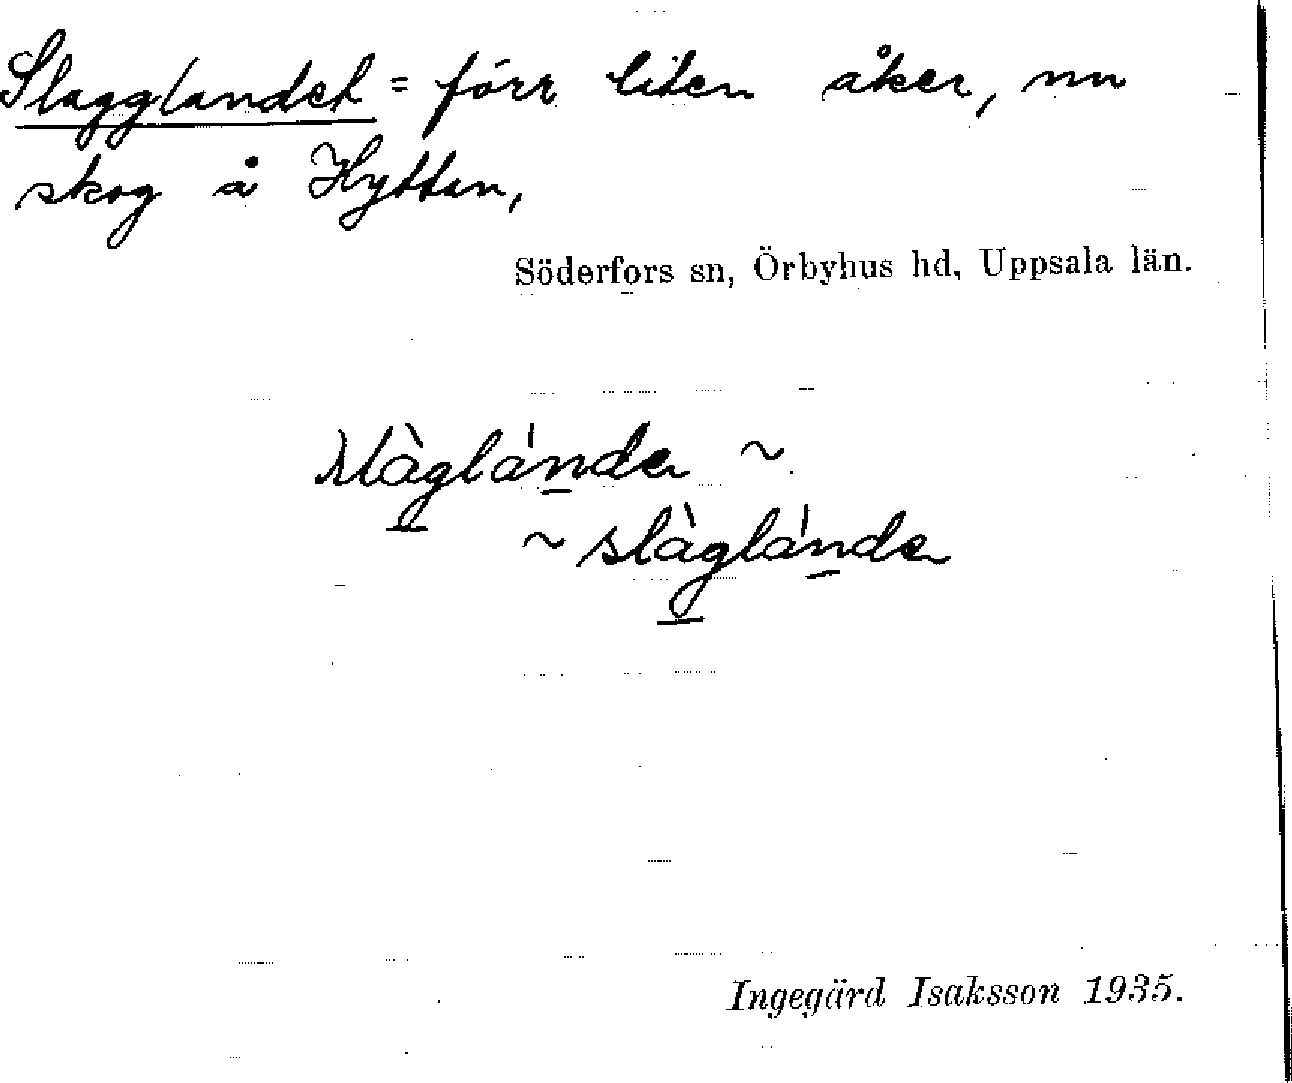 Slagglandet = förr liten åker, nu
skog å Hyttan,
Söderfors sn, Örbyhus hd, Uppsala län.
slàglánde ~
~ slàglánde
Ingegärd Isaksson 1935.